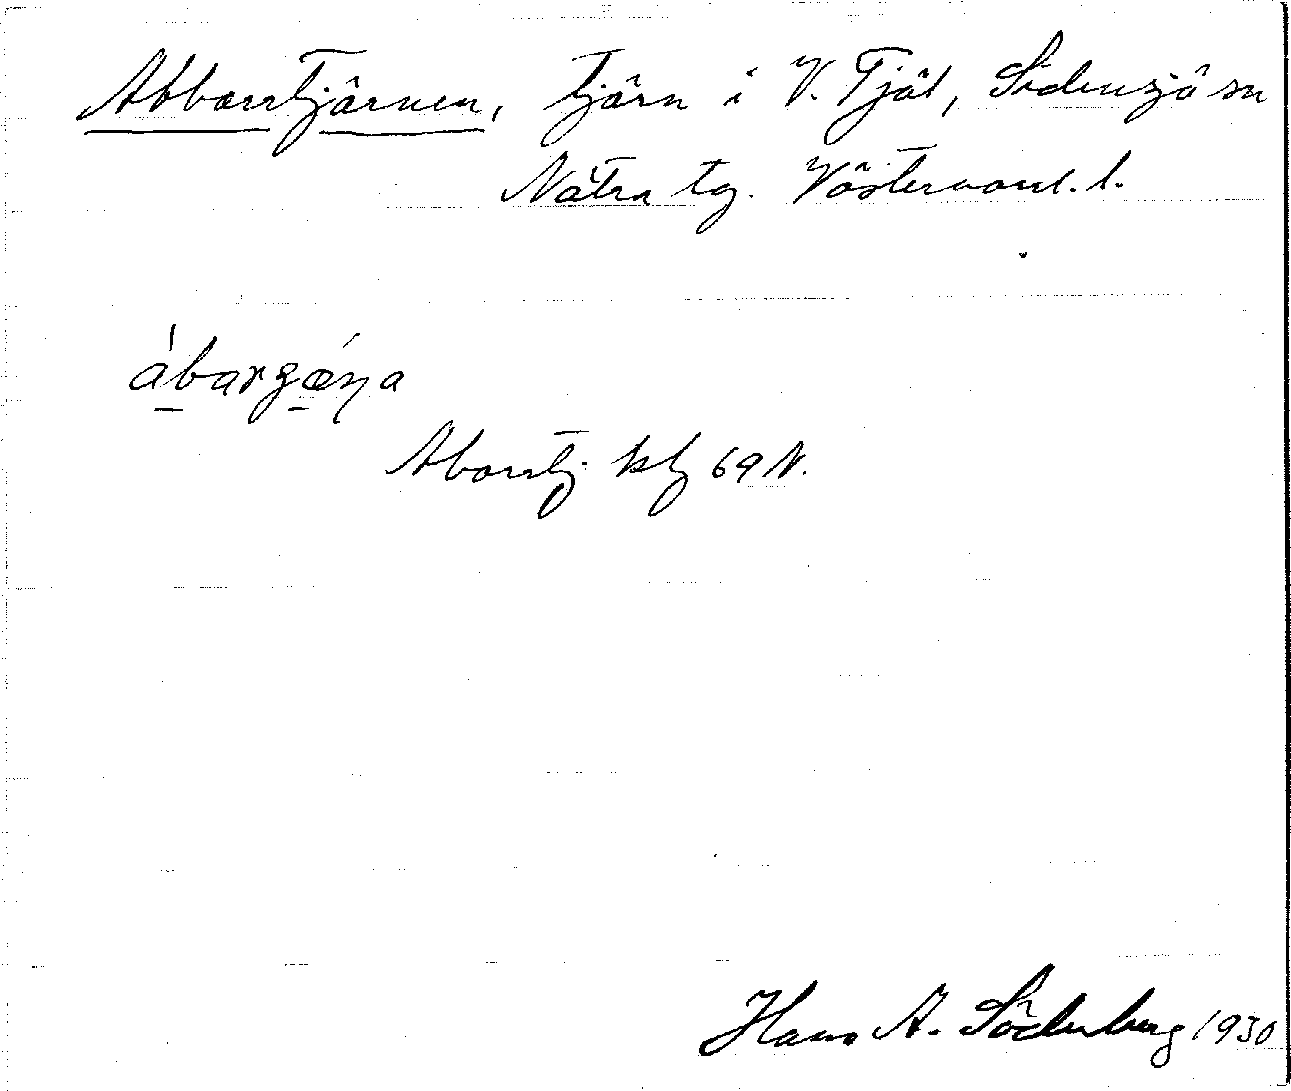 Abborrtjärnen, tjärn i V. Tjäl, Sidensjö sn
Nätra tg. Västernorrl. l.
ábargǽŋa
Aborrtj. kbl 69 N.
Hans A. Söderberg 1930